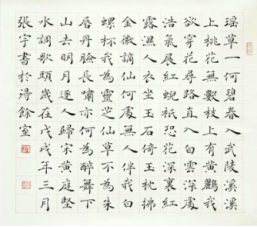 瑤草一何碧春入武陵溪溪
上桃花無數枝上有黃鸝我
欲穿花尋路直入白雲深處
浩氣展虹蜺祇恐花深裏紅
露濕人衣坐玉石倚玉枕拂
金徽謫仙何處無人伴我白
螺杯我為靈芝仙草不為朱
唇丹臉長嘯亦何為醉舞下
山去明月逐人歸宋黃庭堅
水調歌頭歲在戊戌年三月
張宇書於餘室